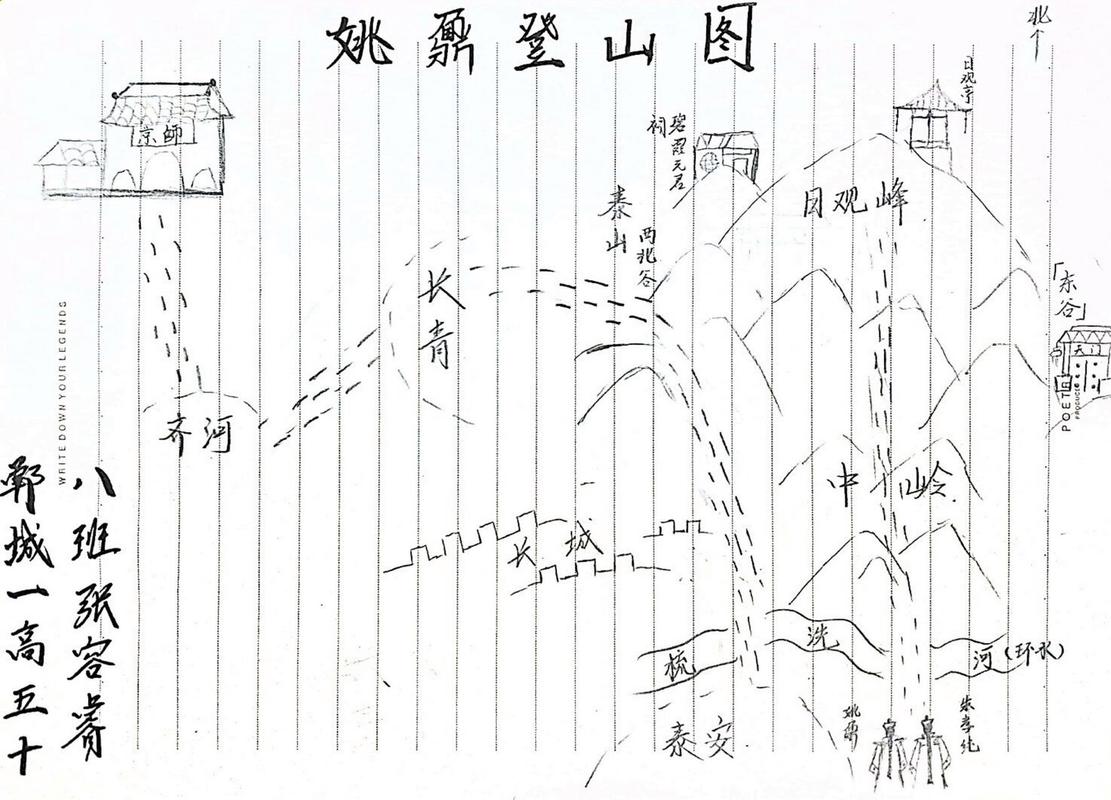 姚鼐登山图
北
日观亭
京師
碧霞元君
祠
日观峰
泰山
西北谷
「东谷」
天门
长青
齐河
中岭
长城
梳洗河(环水)
泰安
姚鼐
朱孝纯
八班张容睿
郸城一高五十
WRITE DOWN YOUR LEGENDS